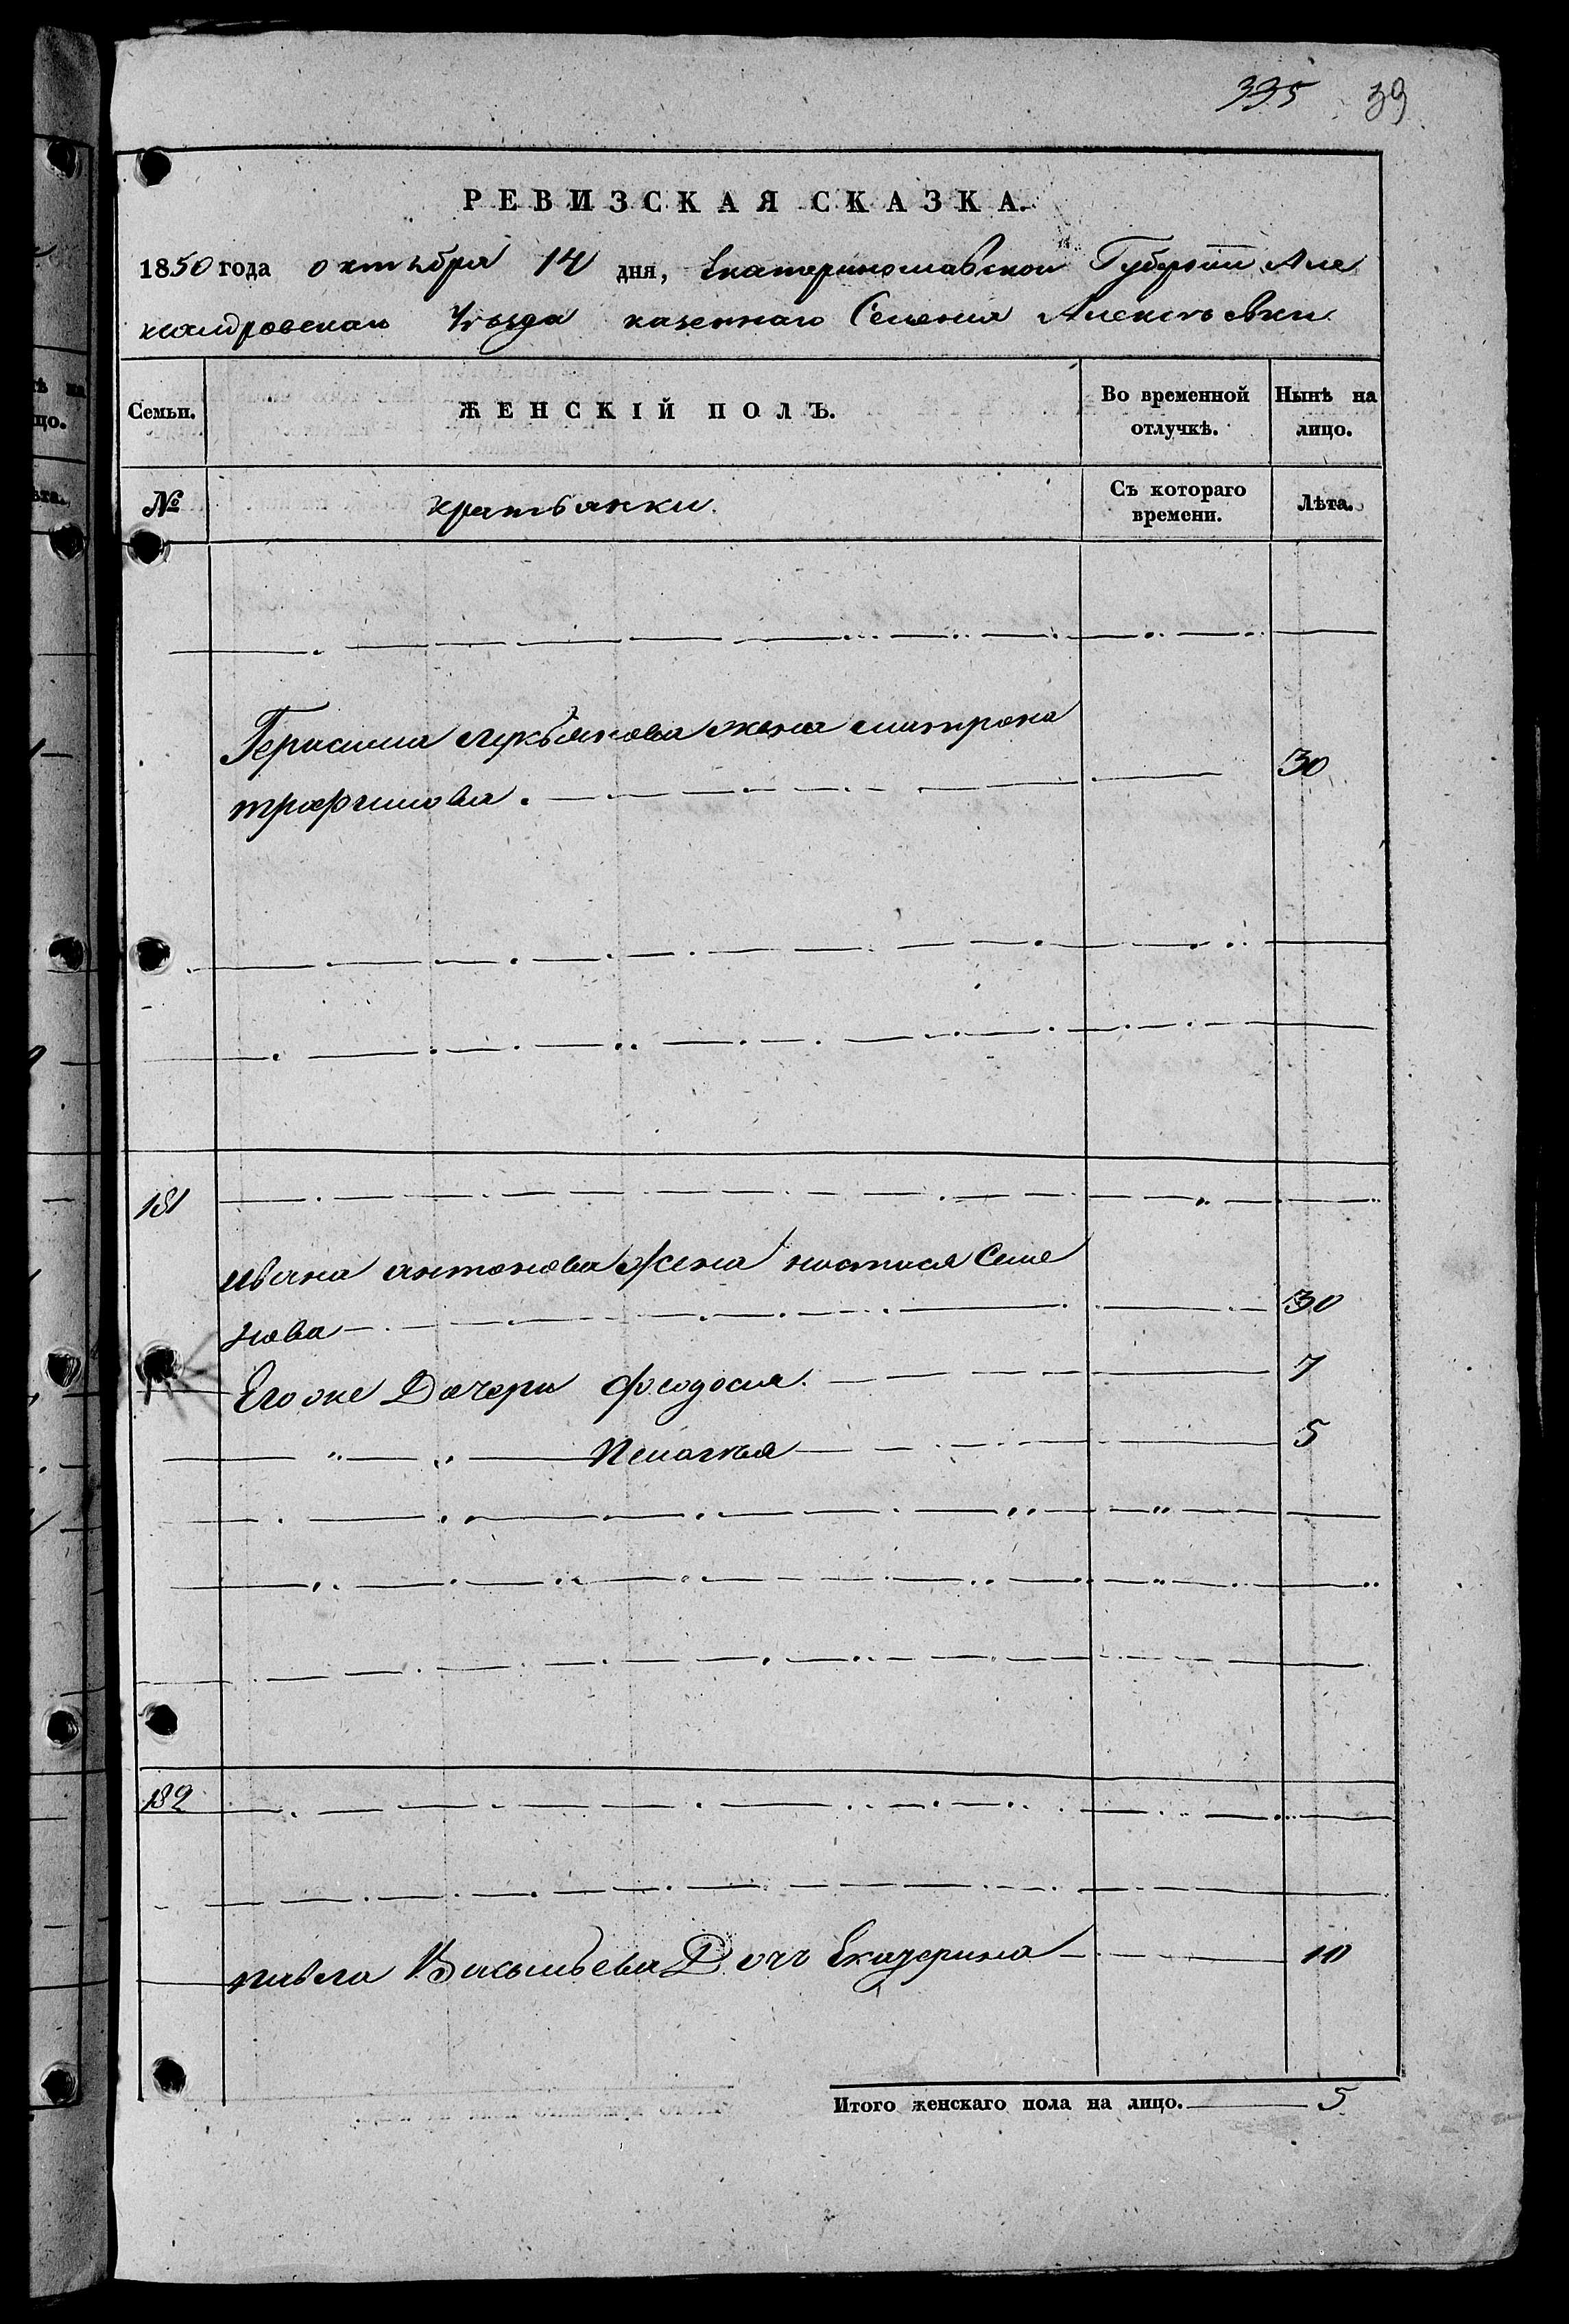 395 39
РЕВИЗСКАЯ СКАЗКА.
1850 года октября 14 дня, Екатеринославской Губернiи Але
ксандровскаго Уѣзда казеннаго Селенiя Алексѣевки
Семьи. ЖЕНСКІЙ ПОЛЪ. Во временной отлучкѣ. Нынѣ на лицо.
№ крестьянки. Съ котораго времени. Лѣта.
Герасима Лукьянова жена матрона
трофимова. 30
181
ивана антонова жена настася Семе
нова 30
Егоже Дочери феодосия 7
" " Пелагея 5
182
павла Васильева Дочь Екатерина 10
Итого женскаго пола на лицо. 5
ѣ на
цо.
ѣта.